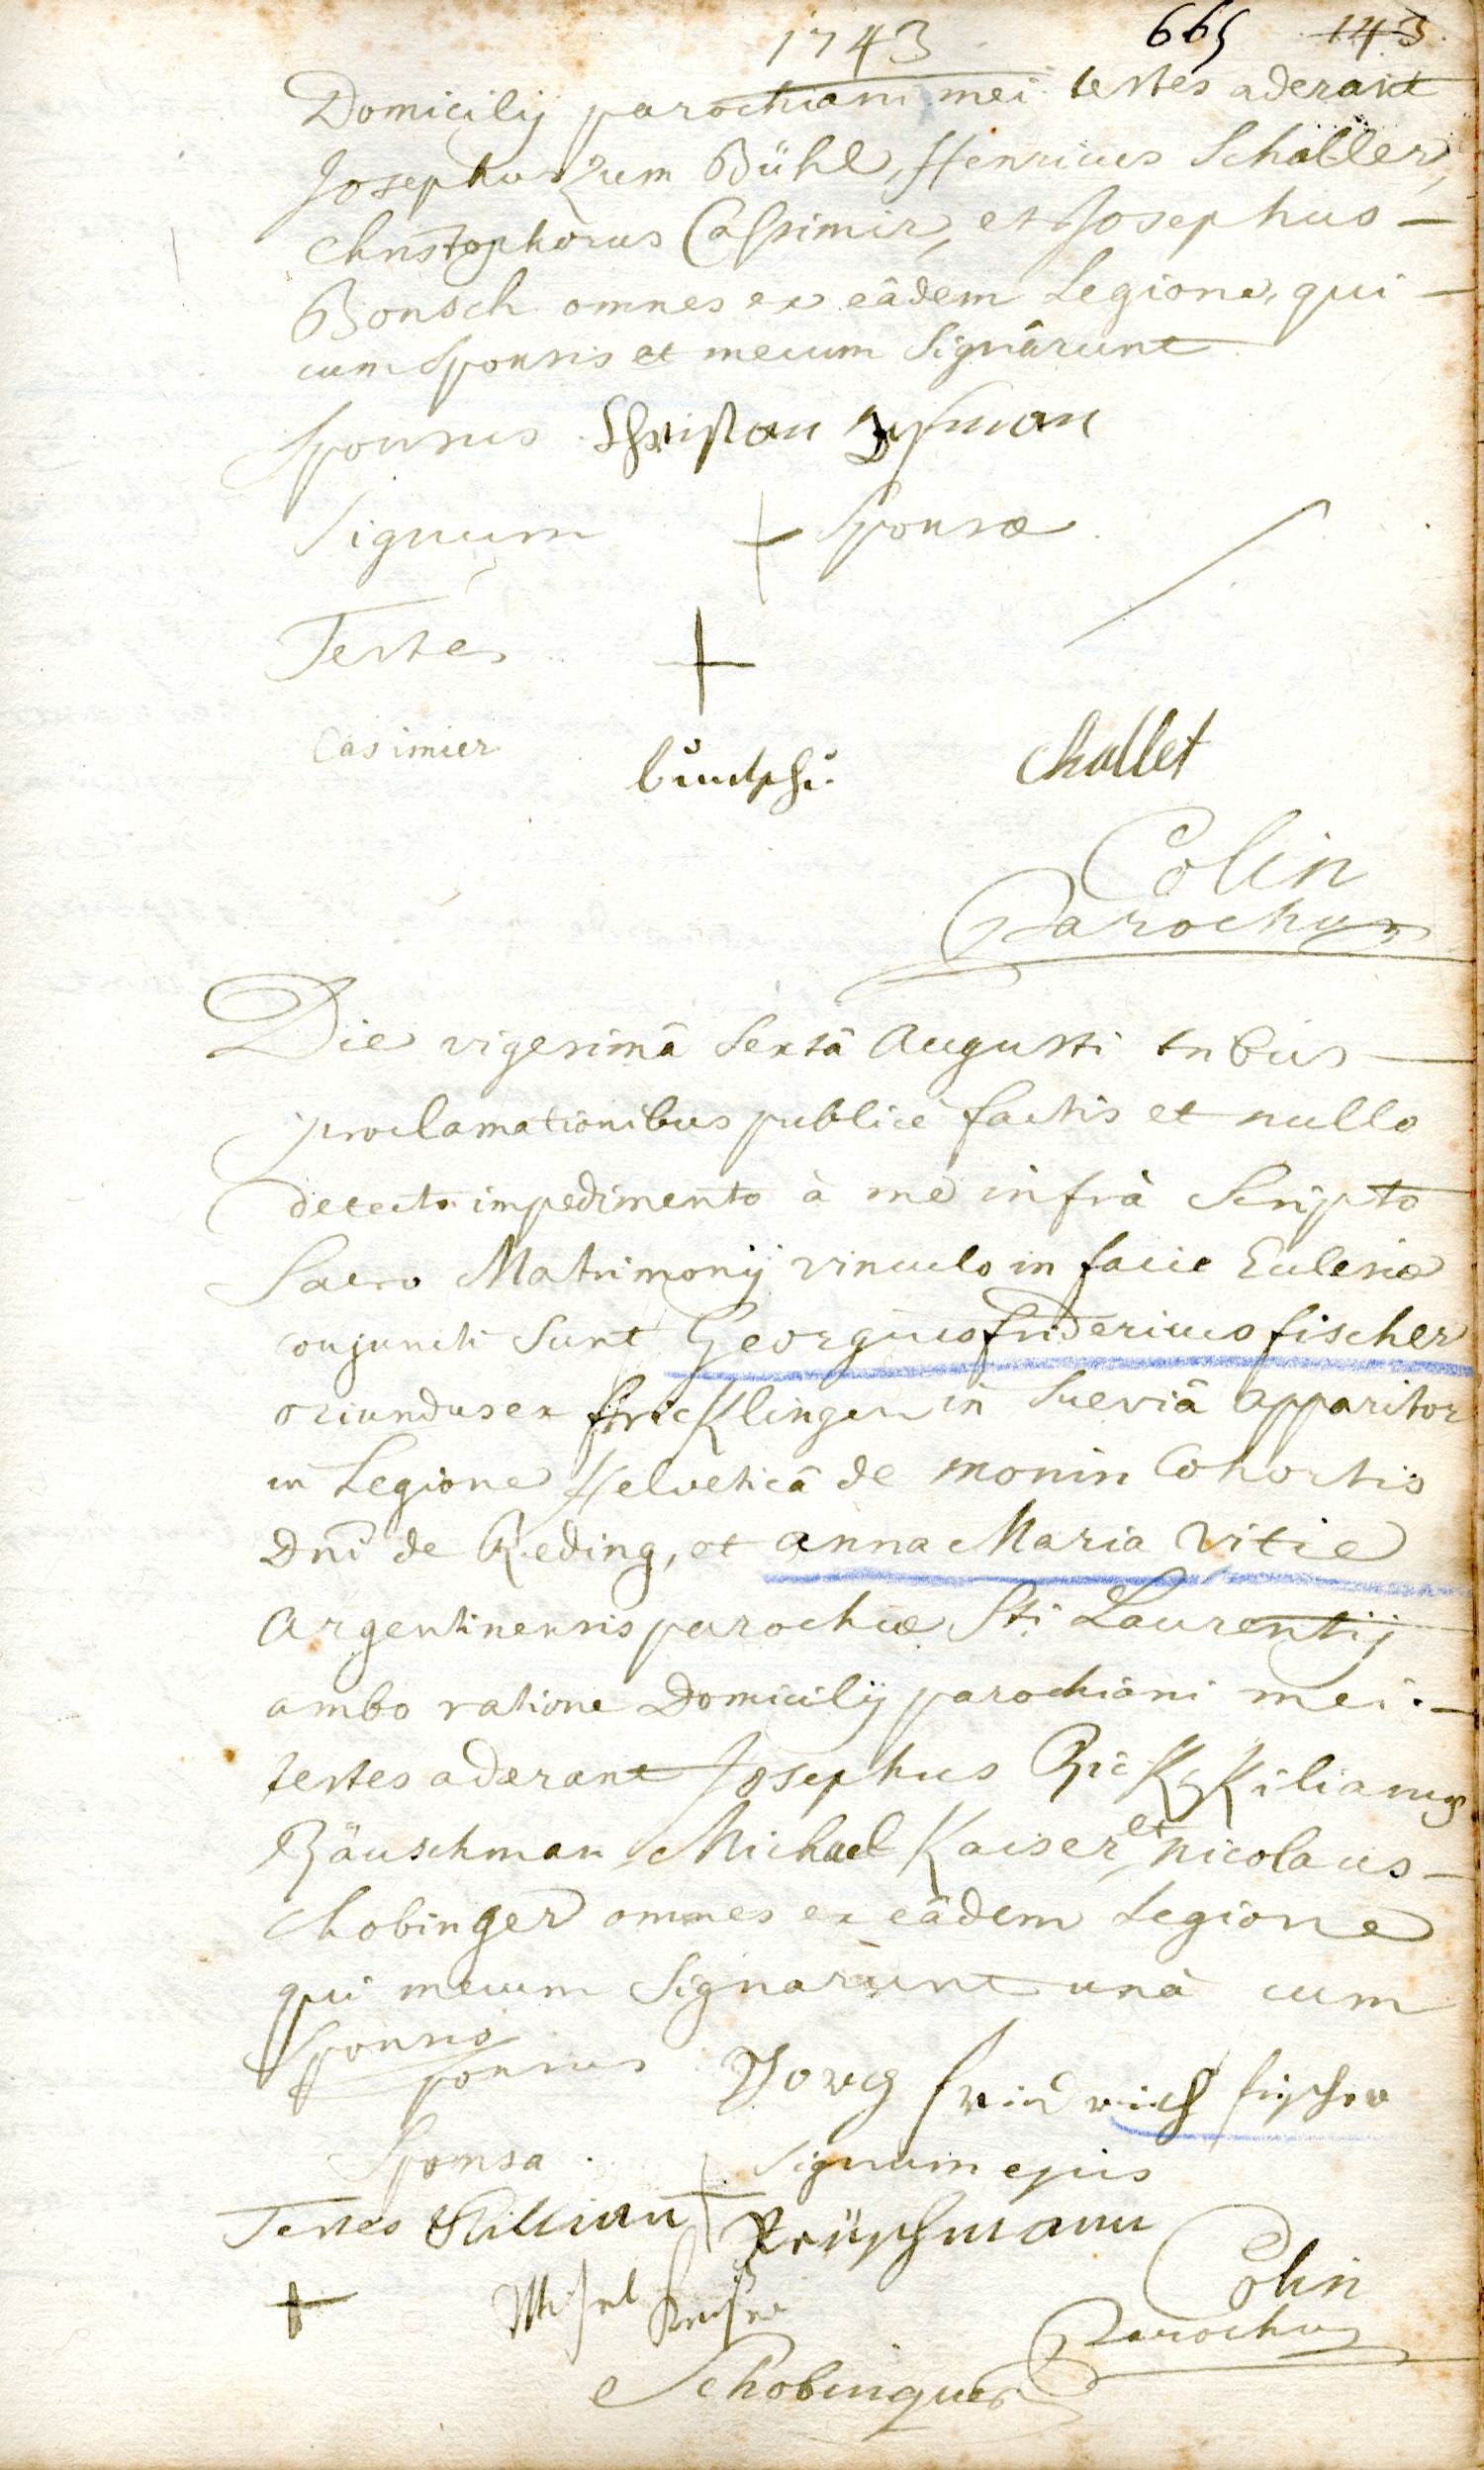 1743 665 143
Domicilij parochiani mei testes aderant
Josephus Zum Bühl, Henricus Schaller,
Christophorus Cassimir, et Josephus
Bonsch omnes ex eâdem Legione, qui
cum Sponsis et mecum Signârunt
Sponsus Christian
Signum + Sponsæ
Testes +
Casimier challet
Colin
Parochus
Die vigesimâ Sextâ Augusti tribus
proclamationibus publice factis et nullo
detecto impedimento à me infrà Scripto
Sacro Matrimonij vinculo in facie Eclesiæ
conjuncti Sunt Georgius fridericus fischer
oriundus ex fricKlingen in Sueviâ Apparitor
in Legione Helveticâ de monin Cohortis
Dni de Reding, et anna Maria Vitie
Argentinensis parochiæ Sti Laurentij
ambo ratione Domicilij parochiani mei.
testes aderant Josephus Rick, Kilianus
Räuschman, Michael Kaiser, et nicolaus
chobinger omnes ex eâdem Legione
qui mecum Signarùnt unà cum
Sponsis
Sponsus Jorg fridrich fischer
Sponsa + Signum ejus
Testes Killian Reüschmann
+ Michel Keiser Colin
Parochus
Schobinguer